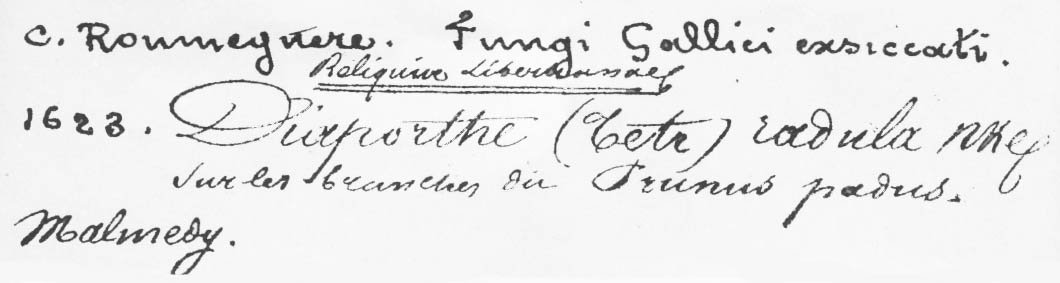 C. Roumeguere. Fungi Gallici exsiccati.
Reliquiae Libertianae
1623. Diaporthe (Tetr) radula Nke
sur les branches du Prunus padus.
Malmedy.